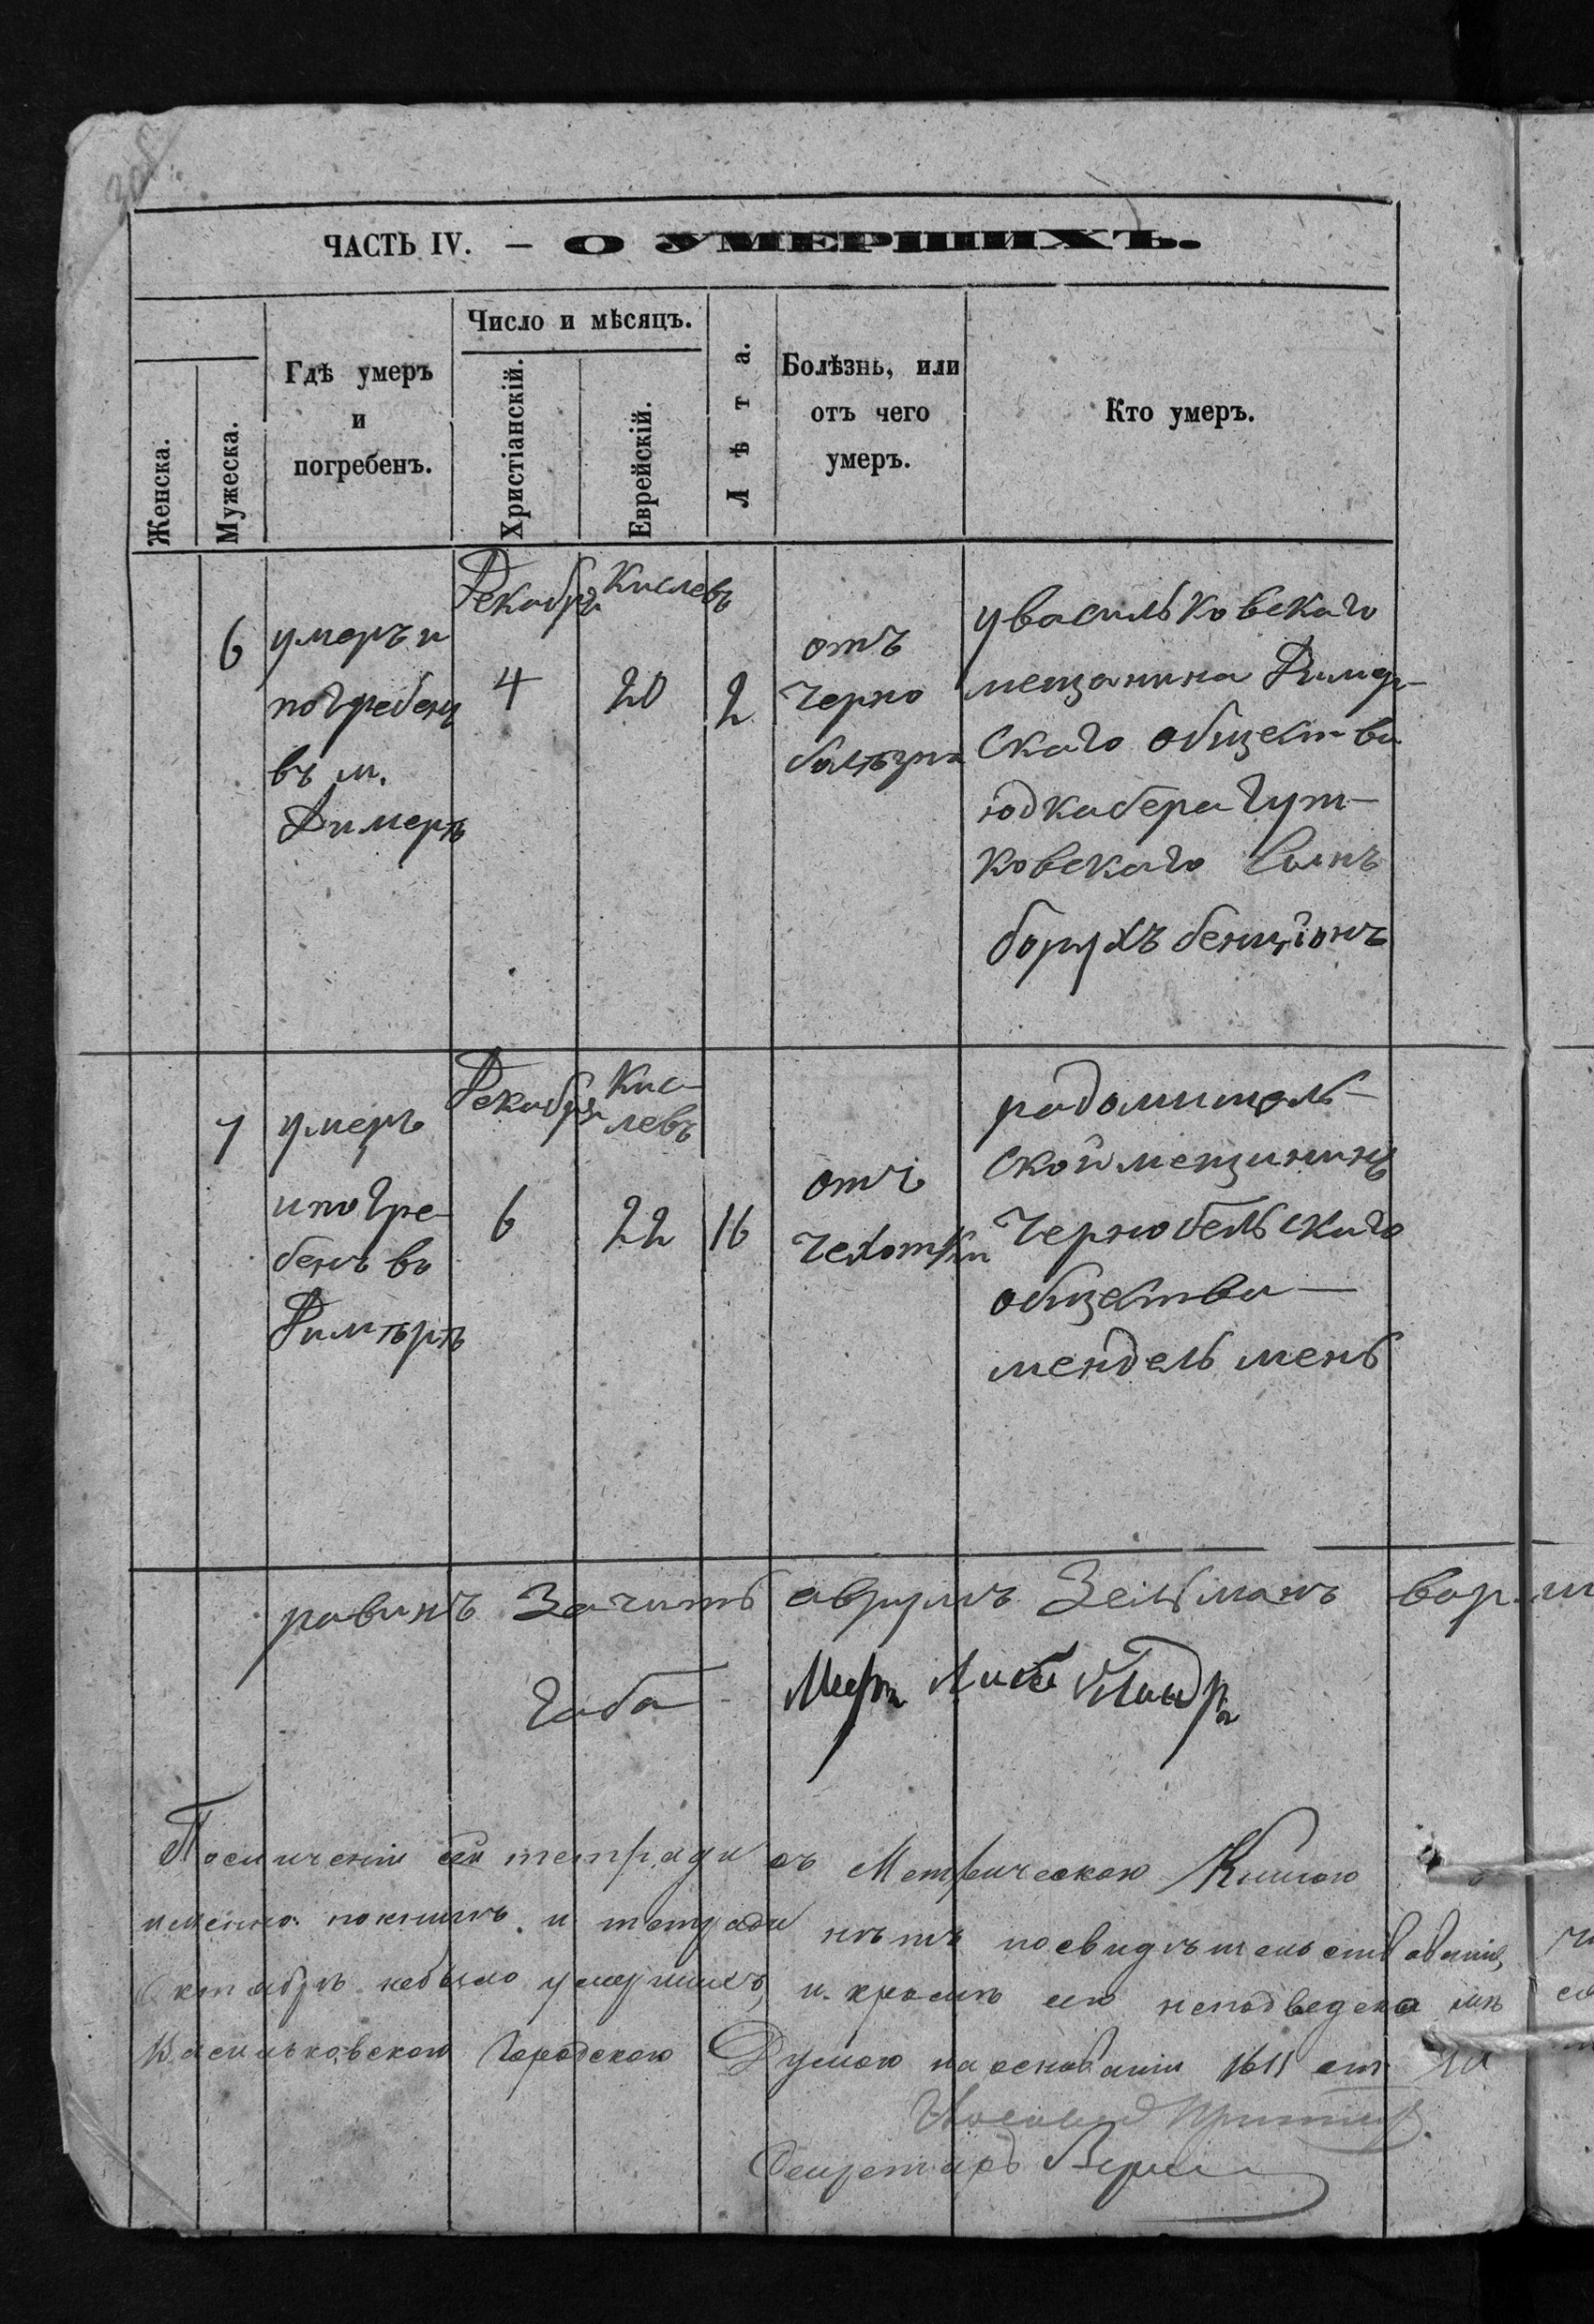 ЧАСТЬ IV. — О УМЕРШИХЪ.
Женска.
Мужеска.
Гдѣ умеръ
и
погребенъ.
Число и мѣсяцъ.
Христіанскій.
Еврейскій.
Лѣта.
Болѣзнь, или
отъ чего
умеръ.
Кто умеръ.
6
умеръ и
погребенъ
въ м.
Димерѣ
Декабря
4
Кислевъ
20
2
отъ
черно
болѣзни
у васильковскаго
мещанина Димер-
скаго общества
юдка бера Гут-
ковскаго сынъ
борухъ бенціонъ
7
умеръ
и погре-
бенъ въ
Димѣрѣ
Декабря
6
Кис-
левъ
22
16
отъ
чехотки
радомисль-
ской мещининъ
чернобельскаго
общества —
мендель мень
равинъ Зачитъ аврумъ Зельманъ вар
Габа
По сличеніи сей тетради съ Метрическою Книгою
именно: по книгѣ и тетради нѣтъ посвидѣтельствованія,
Октябрѣ небыло умершихъ, и кромѣ его неподведено
Васильковскою Городскою Думою на основаніи 1611 ст.
Секретарь